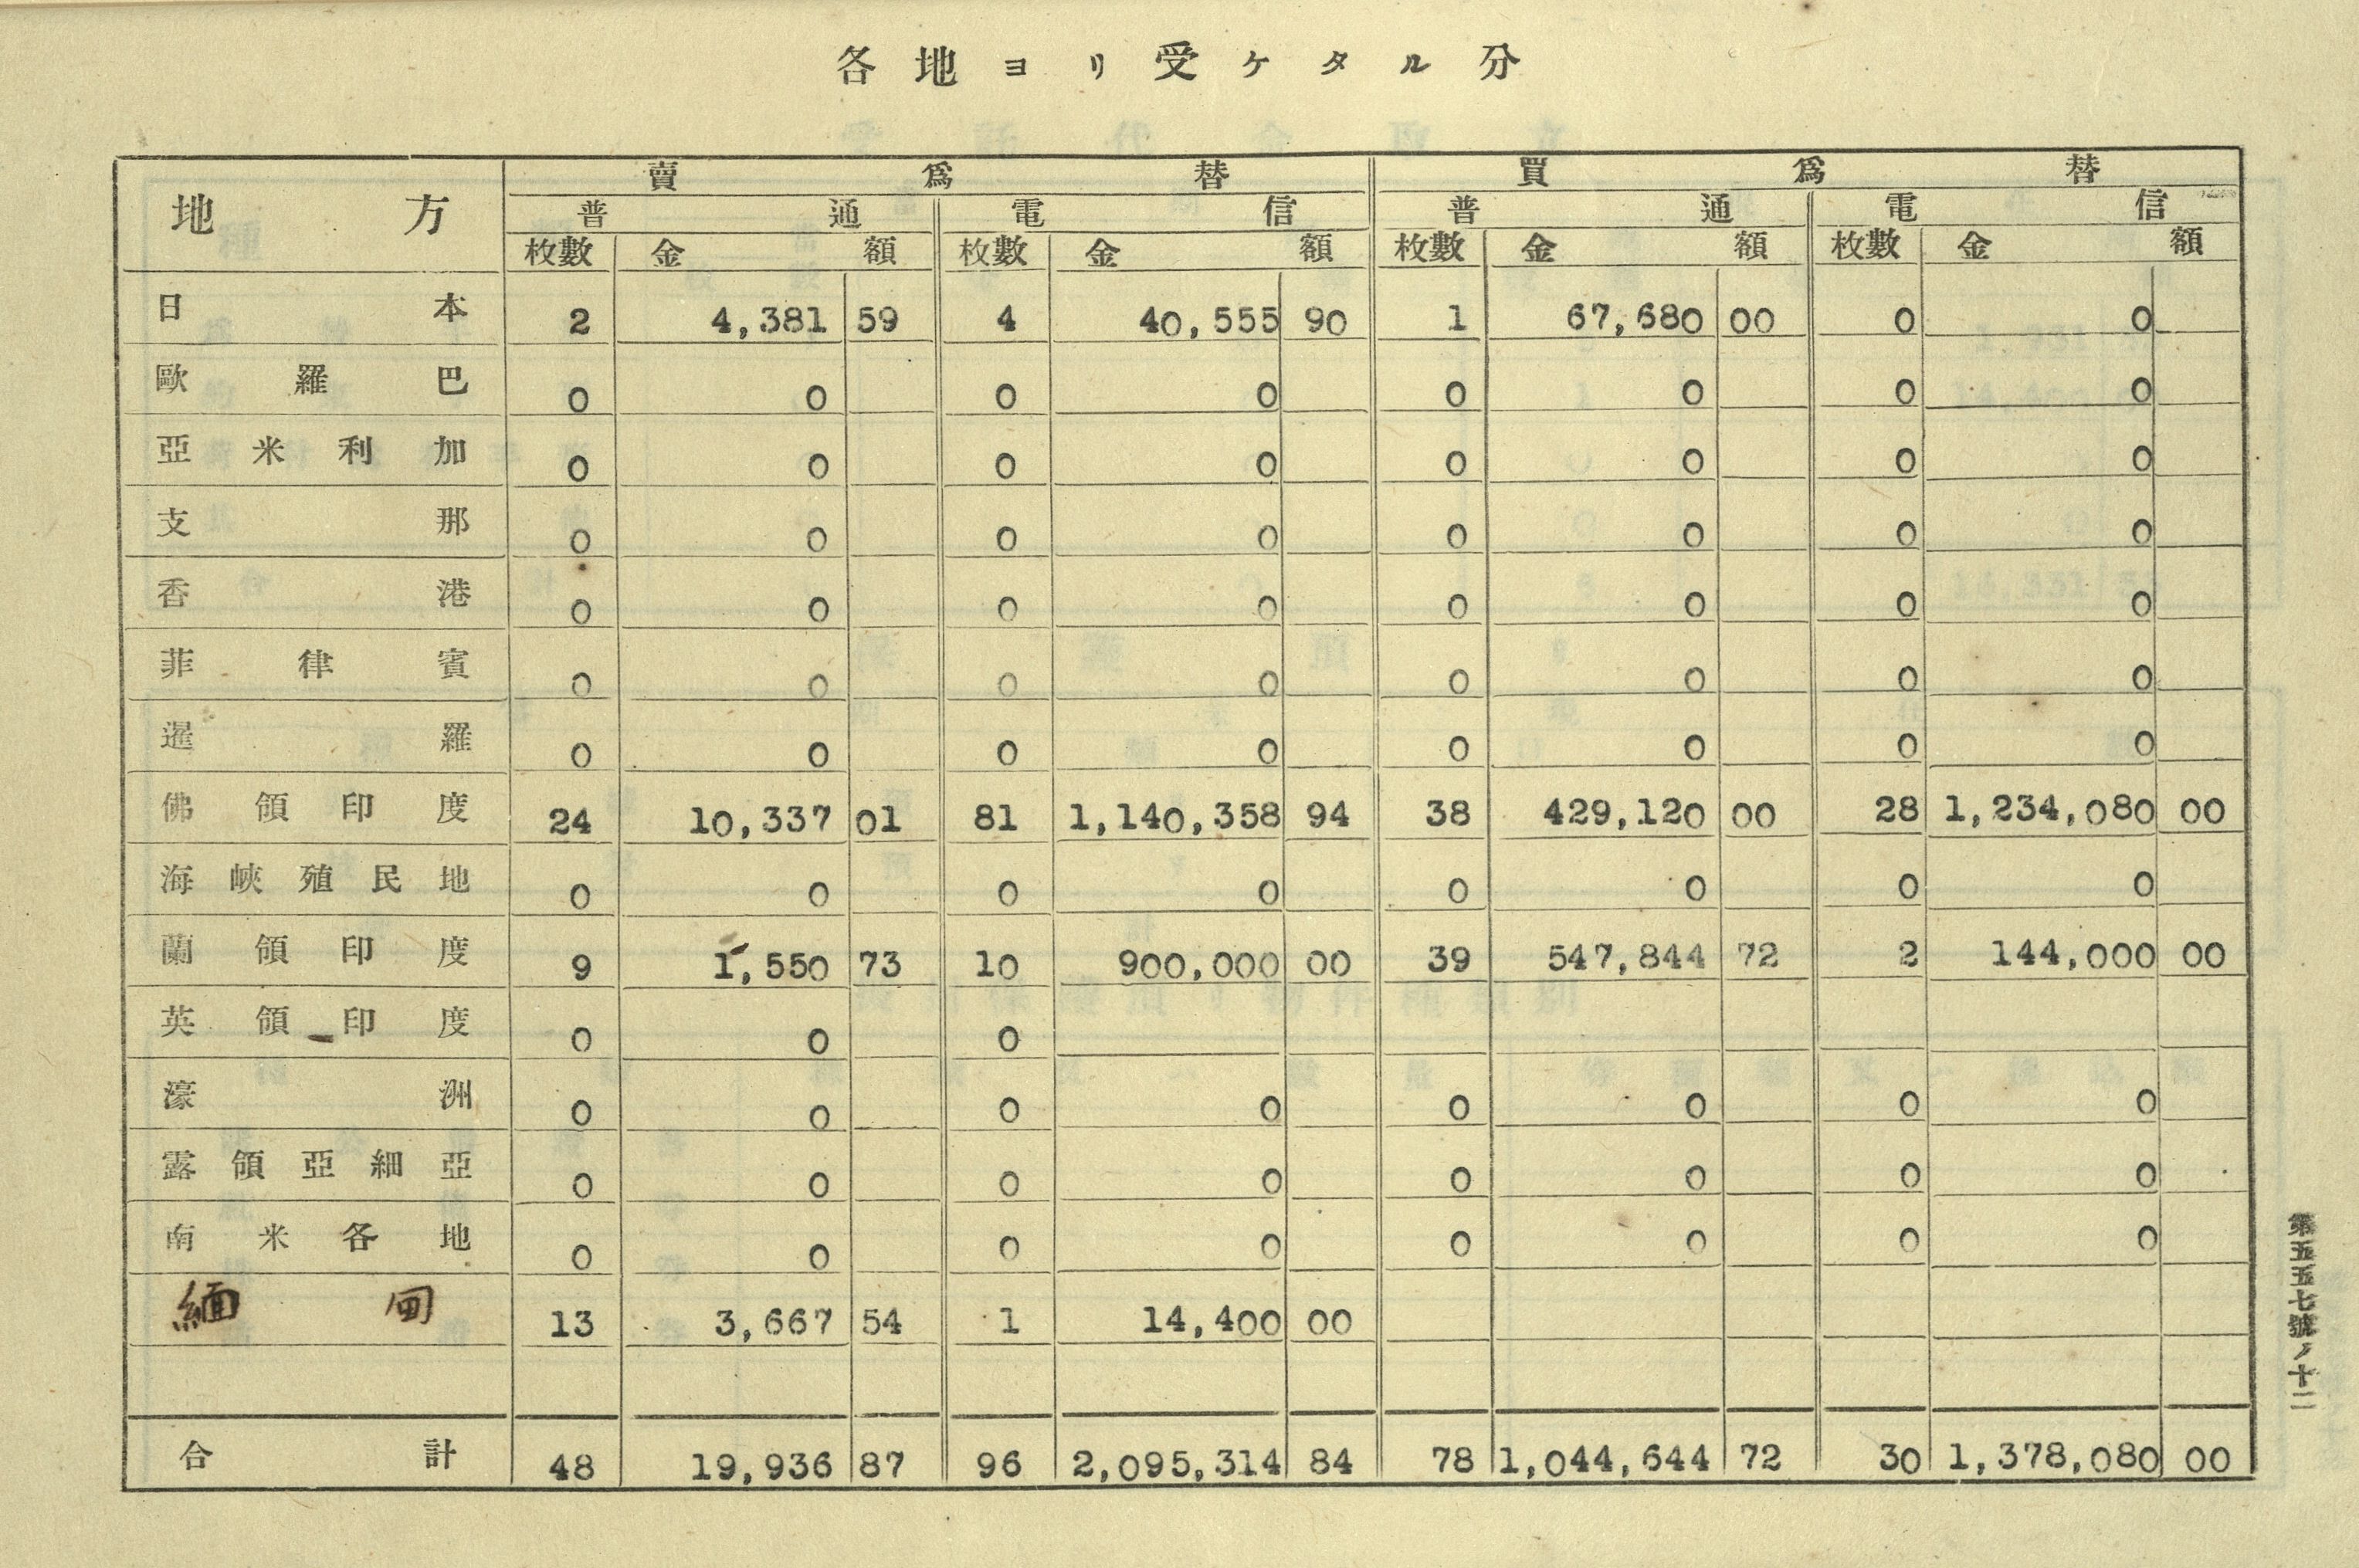 各地ヨリ受ケタル分
地方 賣爲替 買爲替
普通 電信 普通 電信
枚數 金額 枚數 金額 枚數 金額 枚數 金額
日本 2 4,381 59 4 40,555 90 1 67,680 00 0 0
歐羅巴 0 0 0 0 0 0 0 0
亞米利加 0 0 0 0 0 0 0 0
支那 0 0 0 0 0 0 0 0
香港 0 0 0 0 0 0 0 0
菲律賓 0 0 0 0 0 0 0 0
暹羅 0 0 0 0 0 0 0 0
佛領印度 24 10,337 01 81 1,140,358 94 38 429,120 00 28 1,234,080 00
海峽殖民地 0 0 0 0 0 0 0 0
蘭領印度 9 1,550 73 10 900,000 00 39 547,844 72 2 144,000 00
英領印度 0 0 0
濠洲 0 0 0 0 0 0 0 0
露領亞細亞 0 0 0 0 0 0 0 0
南米各地 0 0 0 0 0 0 0 0
緬甸 13 3,667 54 1 14,400 00
合計 48 19,936 87 96 2,095,314 84 78 1,044,644 72 30 1,378,080 00
第五五七號ノ十二